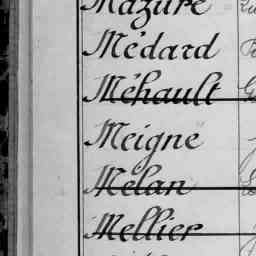 Mazure
Médard
Méhault
Meigné
Mélan
Mellier